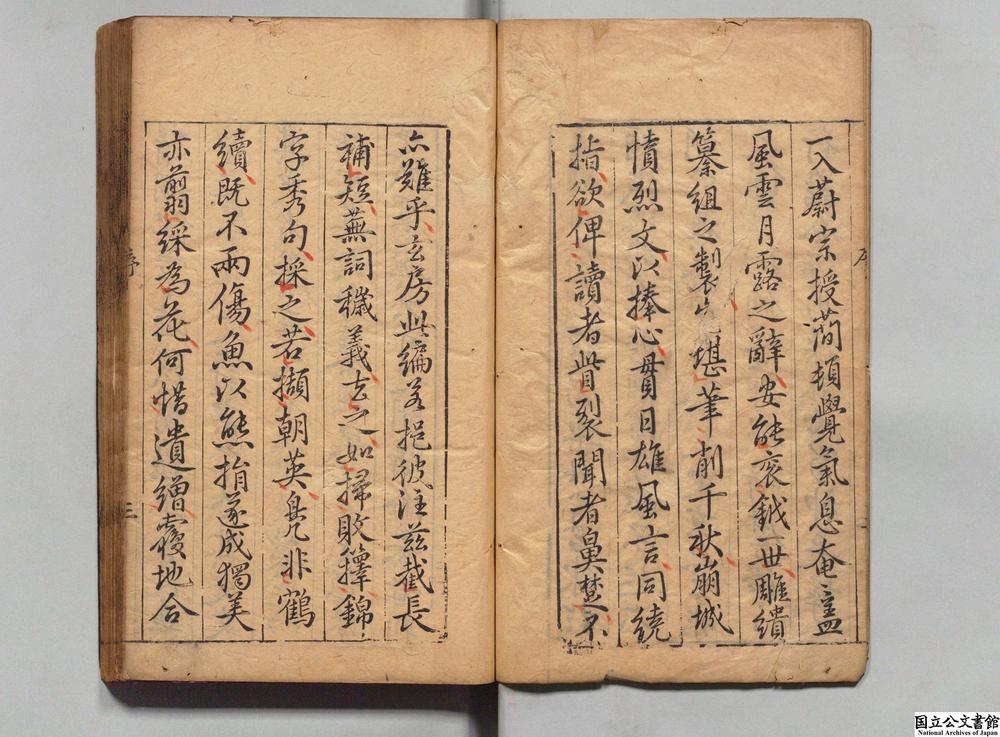 一入蔚宗授蕳頓覺氣息奄〻盖
風雲月露之辭安能袞鉞一世雕繢
篹組之製 堪筆削千秋崩城
憤烈文以捧心貫日雄風言同繞
指欲俾讀者眥裂聞者鼻楚不
亦難乎玄房此編若挹彼注茲截長
補短蕪詞穢義去之如掃敗籜錦
字秀句採之若擷朝英鳧非鶴
續既不兩傷魚以熊捐遂成獨美
亦翦綵為花何惜遺繒覆地合
序
三
国立公文書館
National Archives of Japan